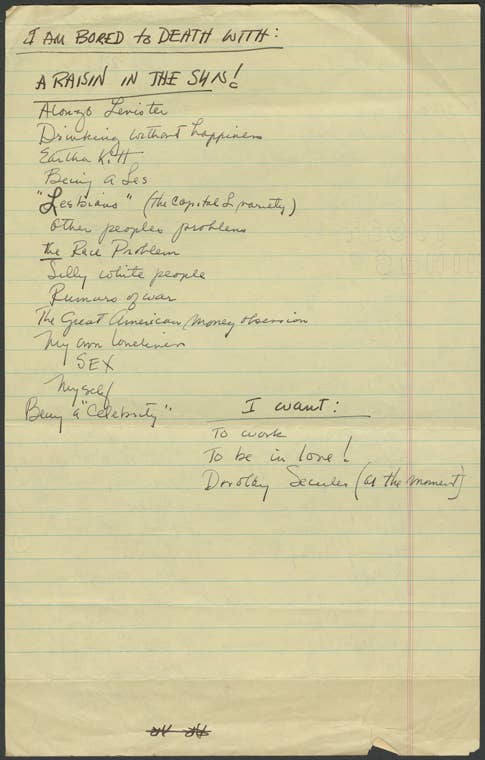 I AM BORED to DEATH WITH:
A RAISIN IN THE SUN!
Alonzo Levister
Drinking without happiness
Eartha Kitt
Being a Les
"Lesbians" (the capital L variety)
Other peoples problems
the Race Problem
Silly white people
Rumors of war
The Great American Money obsession
My own loneliness
SEX
Myself
Being a "Celebrity"
I want:
To work
To be in love!
Dorothy Secules (at the moment)